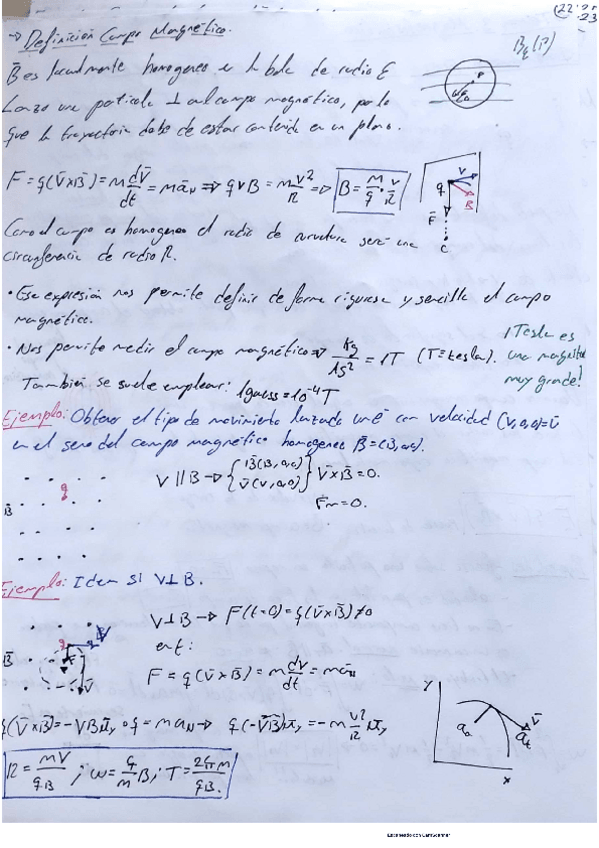 → Definición Campo Magnético.
B̄ es localmente homogeneo en la bola de radio ε
Lanzo una particula ⊥ al campo magnético, por lo
que la trayectoria debe de estar contenida en un plano.
F = q(V̄×B̄) = m dV̄/dt = m ā_N ⇒ qVB = m V²/R ⇒ B = m/q · V/R
V
q
B
F̄
C
Como el campo es homogeneo el radio de curvatura será una
circunferencia de radio R.
• Esa expresión nos permite definir de forma rigurosa y sencilla el campo
magnético.
• Nos permite medir el campo magnético ⇒ Kg/As² = 1T (T = tesla).
1 Tesla es
una magnitud
muy grande!
También se suele emplear: 1gauss = 10⁻⁴ T
Ejemplo: Obtener el tipo de movimiento lanzado un ē con velocidad (V,0,0)=v̄
en el seno del campo magnético homogeneo B̄ = (B,0,0).
q
B̄
V ∥ B → { B̄(B,0,0) V̄(V,0,0) } V̄×B̄ = 0.
F̄m = 0.
Ejemplo: Idem si V⊥B.
V⊥B → F(t=0) = q(V̄×B̄) ≠ 0
en t:
F = q(V̄×B̄) = m dV̄/dt = m ā_N
B̄
q
F
V̄
q(V̄×B̄) = -VB
q = m a_N →
R = mV/qB ; ω = q/m B ; T = 2πm/qB.
Y
V̄
a_t
x
Escaneado con CamScanner